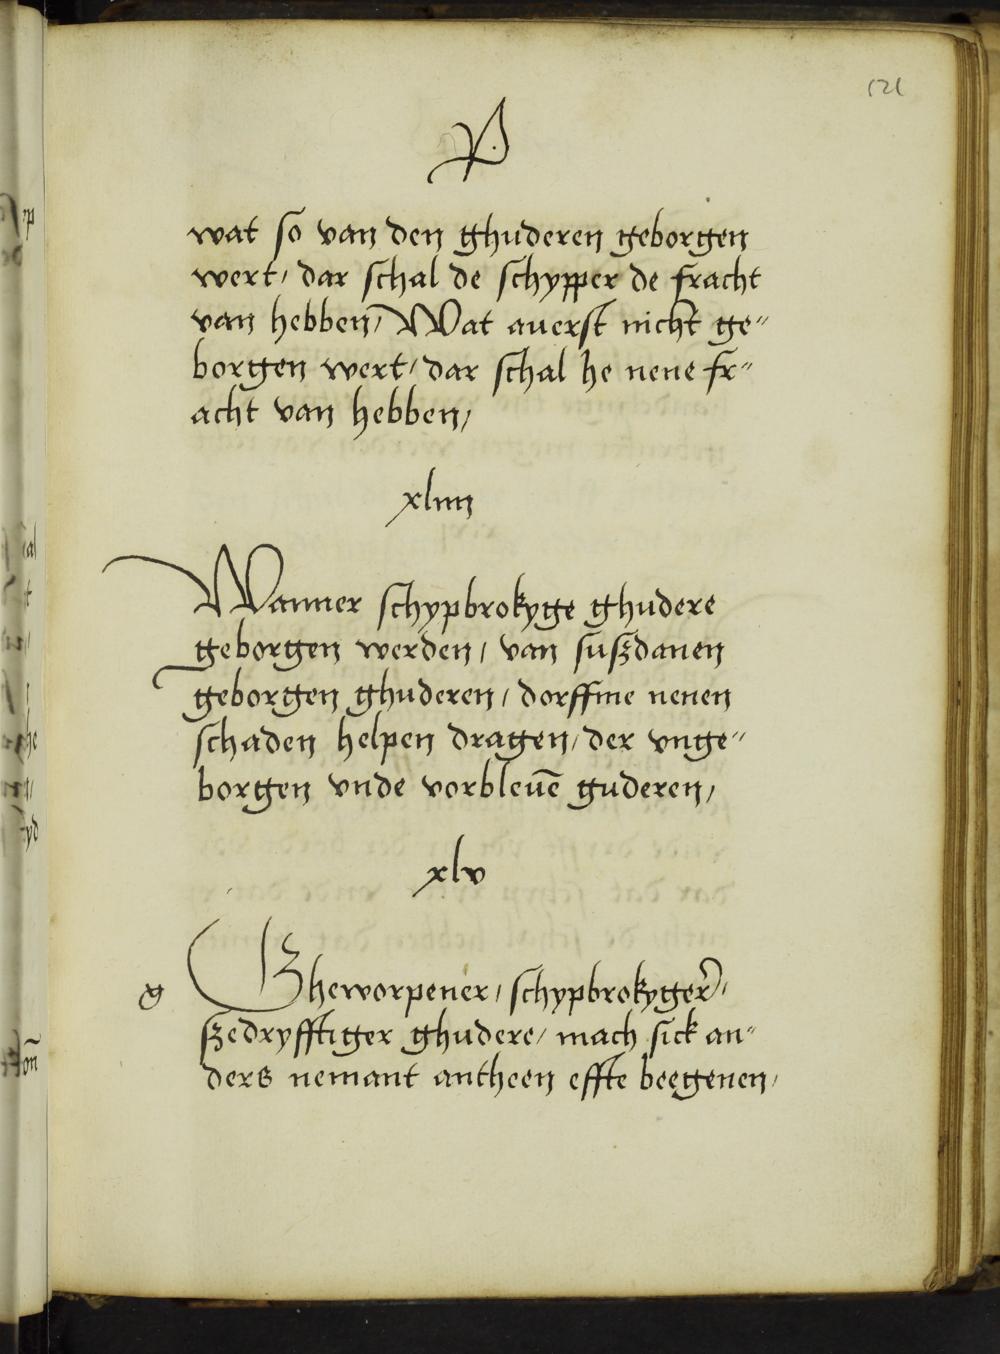 121
P
wat so van den ghuderen geborgen
wert/ dar schal de schypper de fracht
van hebben/ Wat auerst nicht ge"
borgen wert/ dar schal he nene fr"
acht van hebben/
xliiii
Wanner schypbrokyge ghudere
geborgen werden/ van suszdanen
geborgen ghuderen/ dorffme nenen
schaden helpen dragen/ der vnge"
borgen vnde vorbleuē guderen/
xlv
g Gheworpener/ schypbrokyger/
szedryfftiger ghudere/ mach sick an"
ders nemant antheen effte beegenen/